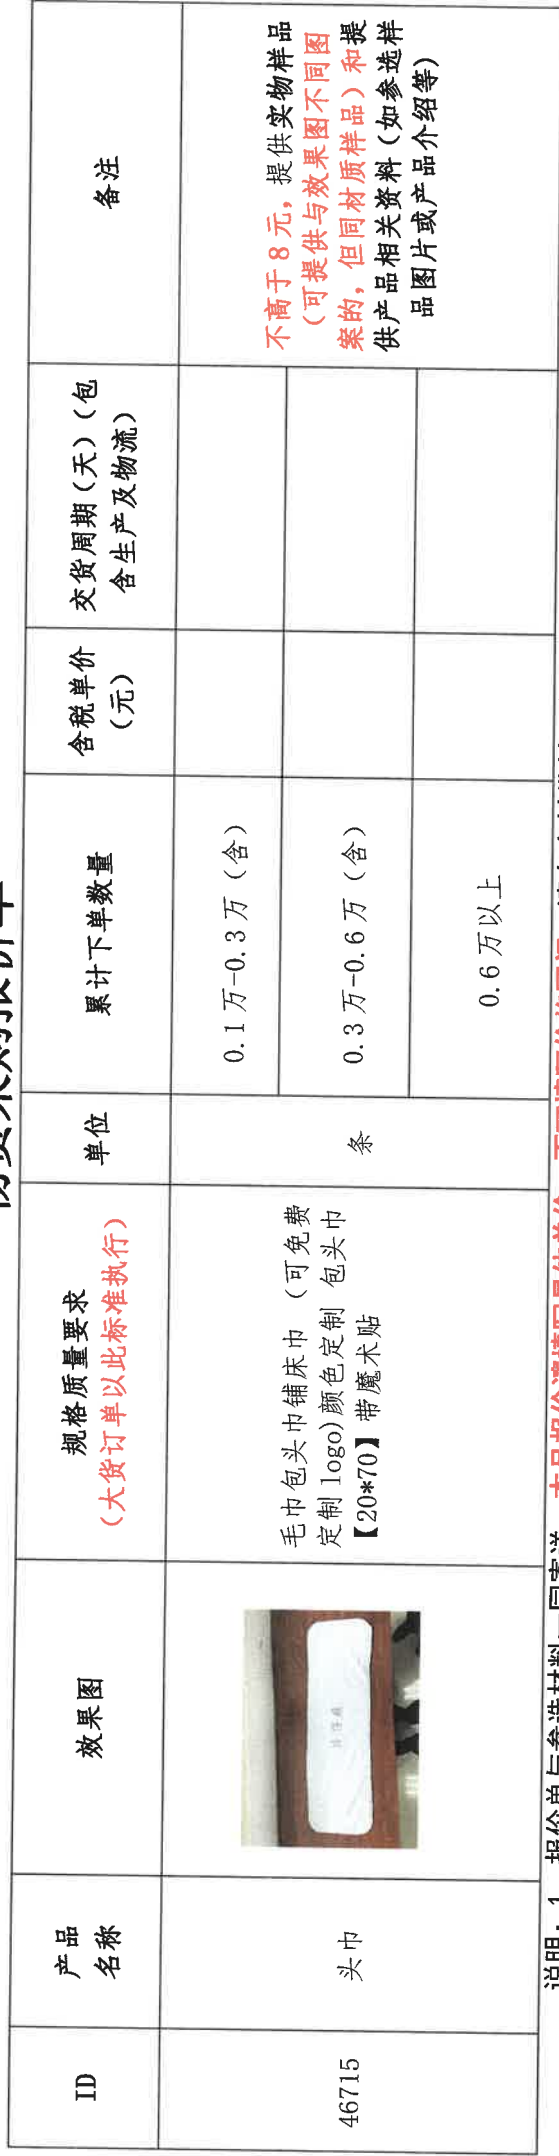 ID
产品
名称
效果图
规格质量要求
（大货订单以此标准执行）
单位
累计下单数量
含税单价
（元）
交货周期（天）（包
含生产及物流）
备注
46715
头巾
毛巾包头巾铺床巾（可免费
定制logo)颜色定制 包头巾
【20*70】带魔术贴
条
0.1万-0.3万（含）
0.3万-0.6万（含）
0.6万以上
不高于8元，提供实物样品
（可提供与效果图不同图
案的，但同材质样品）和提
供产品相关资料（如参选样
品图片或产品介绍等）
说明：1、报价单与参选材料一同寄送，